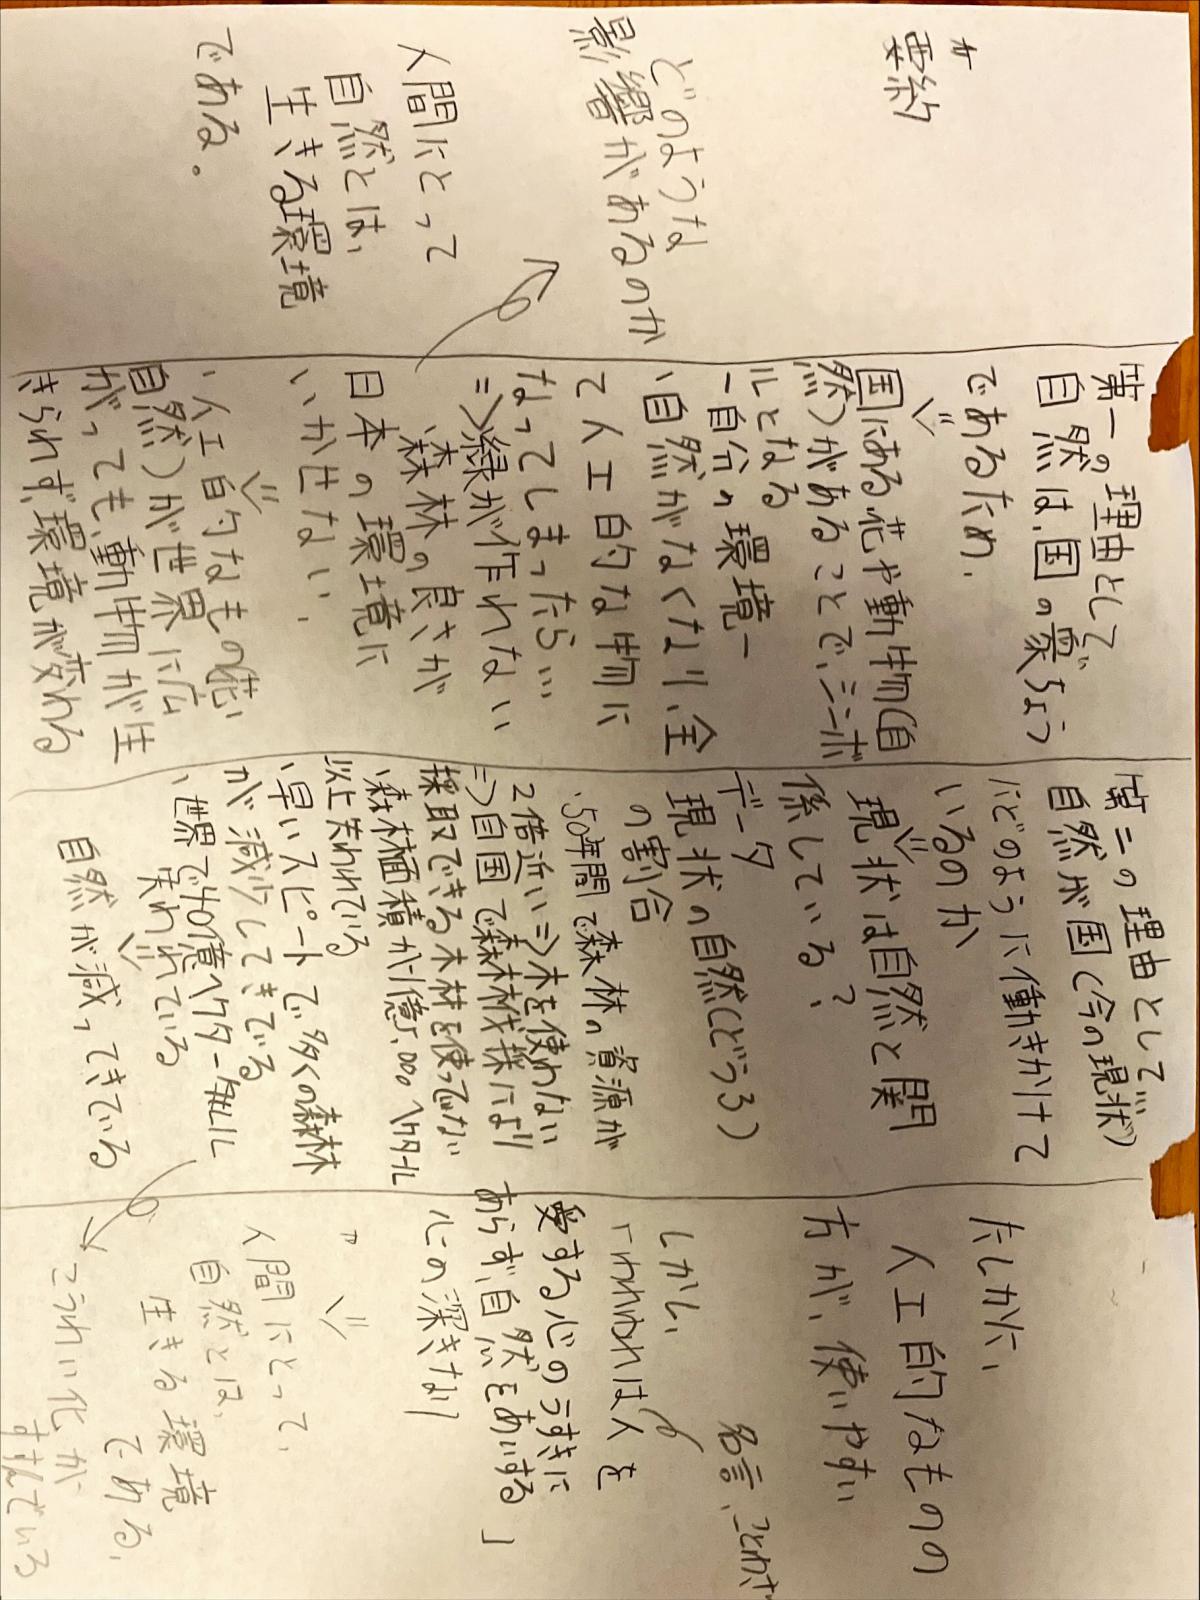 # 要約
どのような
影響があるのか
人間にとって
自然とは、
生きる環境
である。
第一の理由として
自然は、国の象ちょう
であるため、
国にある花や動物(自
然)があることで、シンボ
ルとなる
ー自分の環境ー
、自然がなくなり、全
て人工的な物に
なってしまったら…
⇒緑が作れない
、森林の良さが
日本の環境に
いかせない、
、人工的なもの
自然)が世界に広
がっても、動物が生
きられず、環境が変わる
第二の理由として、
自然が国(今の現状)
にどのように働きかけて
いるのか
現状は自然と関
係している?
データ
現状の自然(どうろ)
の割合
、50年間で森林の資源が
2倍近い⇒木を使わない
⇒自国で森林伐採により
採取できる木材を使ってない
、森林面積が1億5,000ヘクタール
以上失われている
、早いスピートで多くの森林
が減少してきでる
、世界で40億ヘクタール
失われている
自然が減ってきている
たしかに、
人工的なものの
方が、使いやすい
名言、ことわざ
しかし、
「われわれは人を
愛する心のうすきに
あらず、自然をあいする
心の深きなり
」
人間にとって、
自然とは、
生きる環境
である、
こうれい化が
すすんでいる